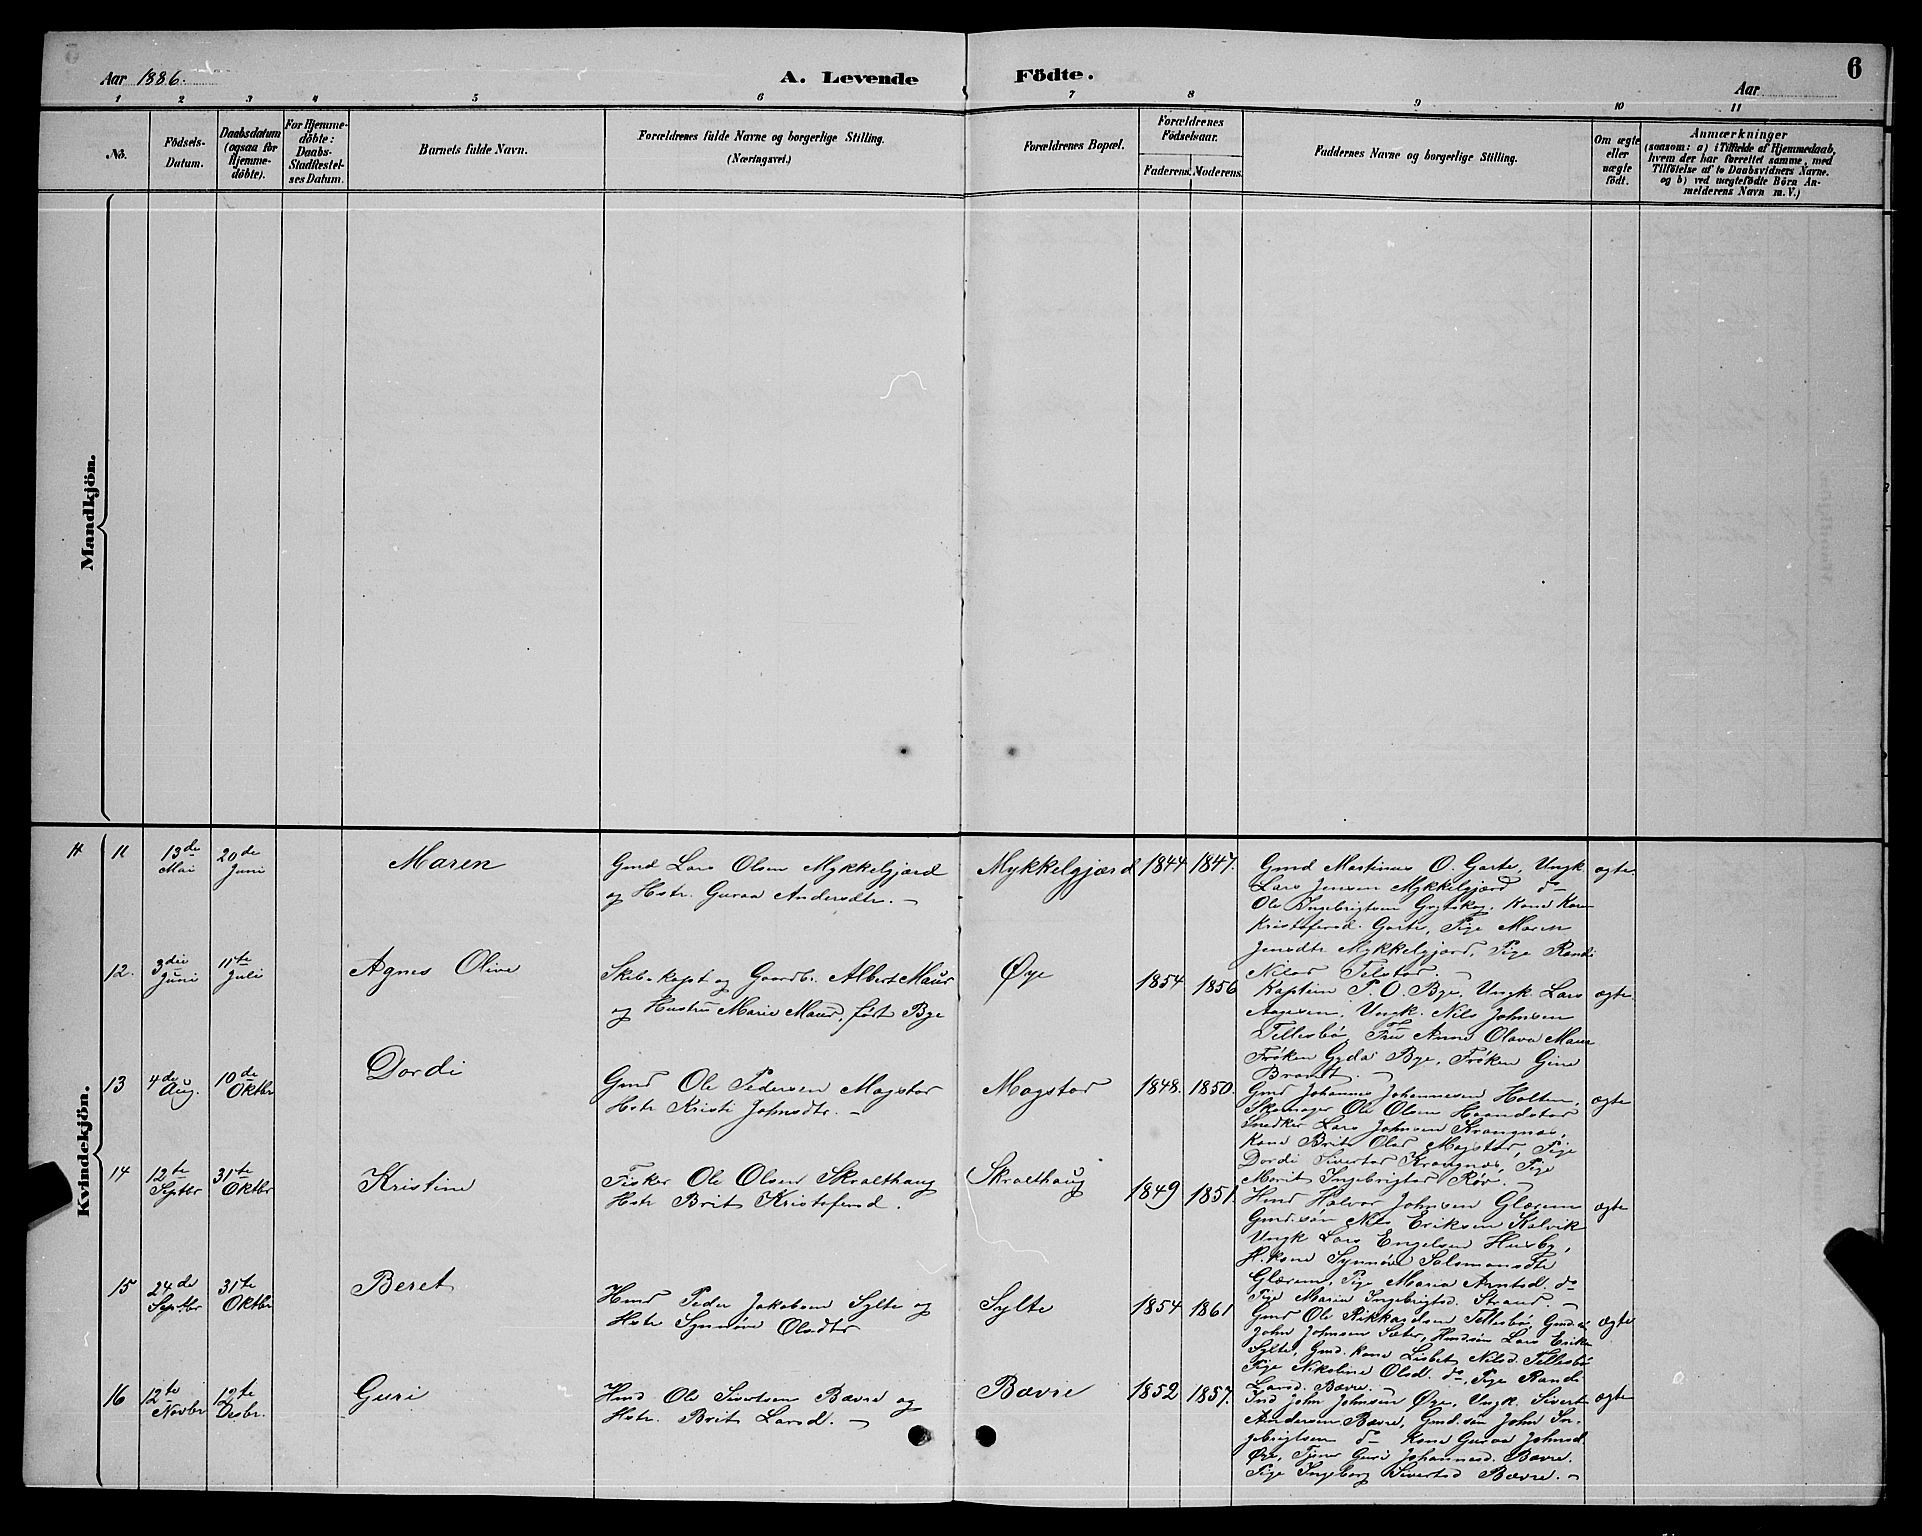 6
Aar 1886.
A. Levende Födte.
Aar
1 2 3 4 5 6 7 8 9 10 11
No.
Födsels-
Datum.
Daabsdatum
(ogsaa for
Hjemme-
döbte).
For Hjemme-
döbte:
Daabs-
Stadfæstel-
ses Datum.
Barnets fulde Navn.
Forældrenes fulde Navne og borgerlige Stilling.
(Næringsvei.)
Forældrenes Bopæl.
Forældrenes
Födselsaar.
Faderens. Moderens.
Faddernes Navne og borgerlige Stilling.
Om ægte
eller
uægte
födt.
Anmærkninger
(saasom: a) i Tilfælde af Hjemmedaab,
hvem der har forrettet samme, med
Tilföielse af to Daabsvidners Navne.
og b) ved uægtefödte Börn An-
melderens Navn m. V.)
Mandkjön.
Kvindekjön.
11
13de
Mai
20de
Juni
Maren
Gmd Lars Olsen Mykkelgjærd
og Hstr. Guroa Andersdtr. –
Mykkelgjærd
1844 1847.
Gmd Mastinus O. Garte, Ungk
Lars Jensen Mykkelgjærd do
Ole Ingebrigtsen Grytskog. Kone Karen
Kristofersd. Garte, Pige Maren
Jensdtr Mykkelgjærd, Pige Randi
Nilsd Telstad. –
ægte
12.
3die
Juni
11te
Juli
Agnes Olive
Skibskapt og Gaardb. Albert Maur
og Hustru Marie Maur, født Bye
Øye
1854 1856
Kaptein P. O. Bye, Ungk. Lars
Aagesen, Ungk. Nils Johnsen
Tellesbø, Fru Anne Olava Maur
Frøken Gyda Bye, Frøken Gine
Brandt. –
ægte.
13
4de
Aug.
10de
Oktbr
Dordi
Gmd Ole Pedersen Magstad
Hstr Kristi Johnsdtr. –
Magstad
1848. 1850.
Gmd Johannes Johannesen Holten,
Skomager Ole Olsen Haandstad
Snedker Lars Johnsen Krangnæs,
Kone Brit Olsd Magstad, Pige
Dordi Sivertsd Krangnæs, Pige
Marit Ingebrigtsd Røv. –
ægte
14
12te
Septbr
31te
Oktbr
Kristine
Fisker Ole Olsen Skralthaug
Hstr Brit Kristofersd.
Skralthaug
1849 1851.
Hmd Halvor Johnsen Glærem
Gmd.søn Nils Eriksen Kalvik
Ungk Lars Engelsen Husby,
H.kone Synnøve Salomonsdtr
Glærem, Pige Maria Arntsd. do
Pige Maria Ingebrigtsd. Strand. –
ægte
15
24de
Septbr
31te
Oktbr
Beret
Hmd Peder Jakobsen Sylte og
Hstr Synnøve Olsdtr
Sylte
1854 1861
Gmd Ole Rikkardsen Tellesbø, Gmd.
John Johnsen Sæter, Hmdsøn Lars Eriksen
Sylte, Gmd. kone Lisbet Nilsd. Tellesbø
Pige Nikoline Olsd. do, Pige Randi
Larsd. Bævre. –
ægte
16
12te
Novbr
12te
Desbr.
Guri
Hmd Ole Sivertsen Bævre og
Hstr. Brit Larsd. –
Bævre
1852 1857.
Ind John Johnsen Øre, Ungk. Sivert
Andersen Bævre, Gmd.søn John In-
gebrigtsen do Kone Guroa Johnsd
Øre, Tjener Guri Johannesd. Bævre.
Pige Ingeborg Sivertsd Bævre. –
ægte